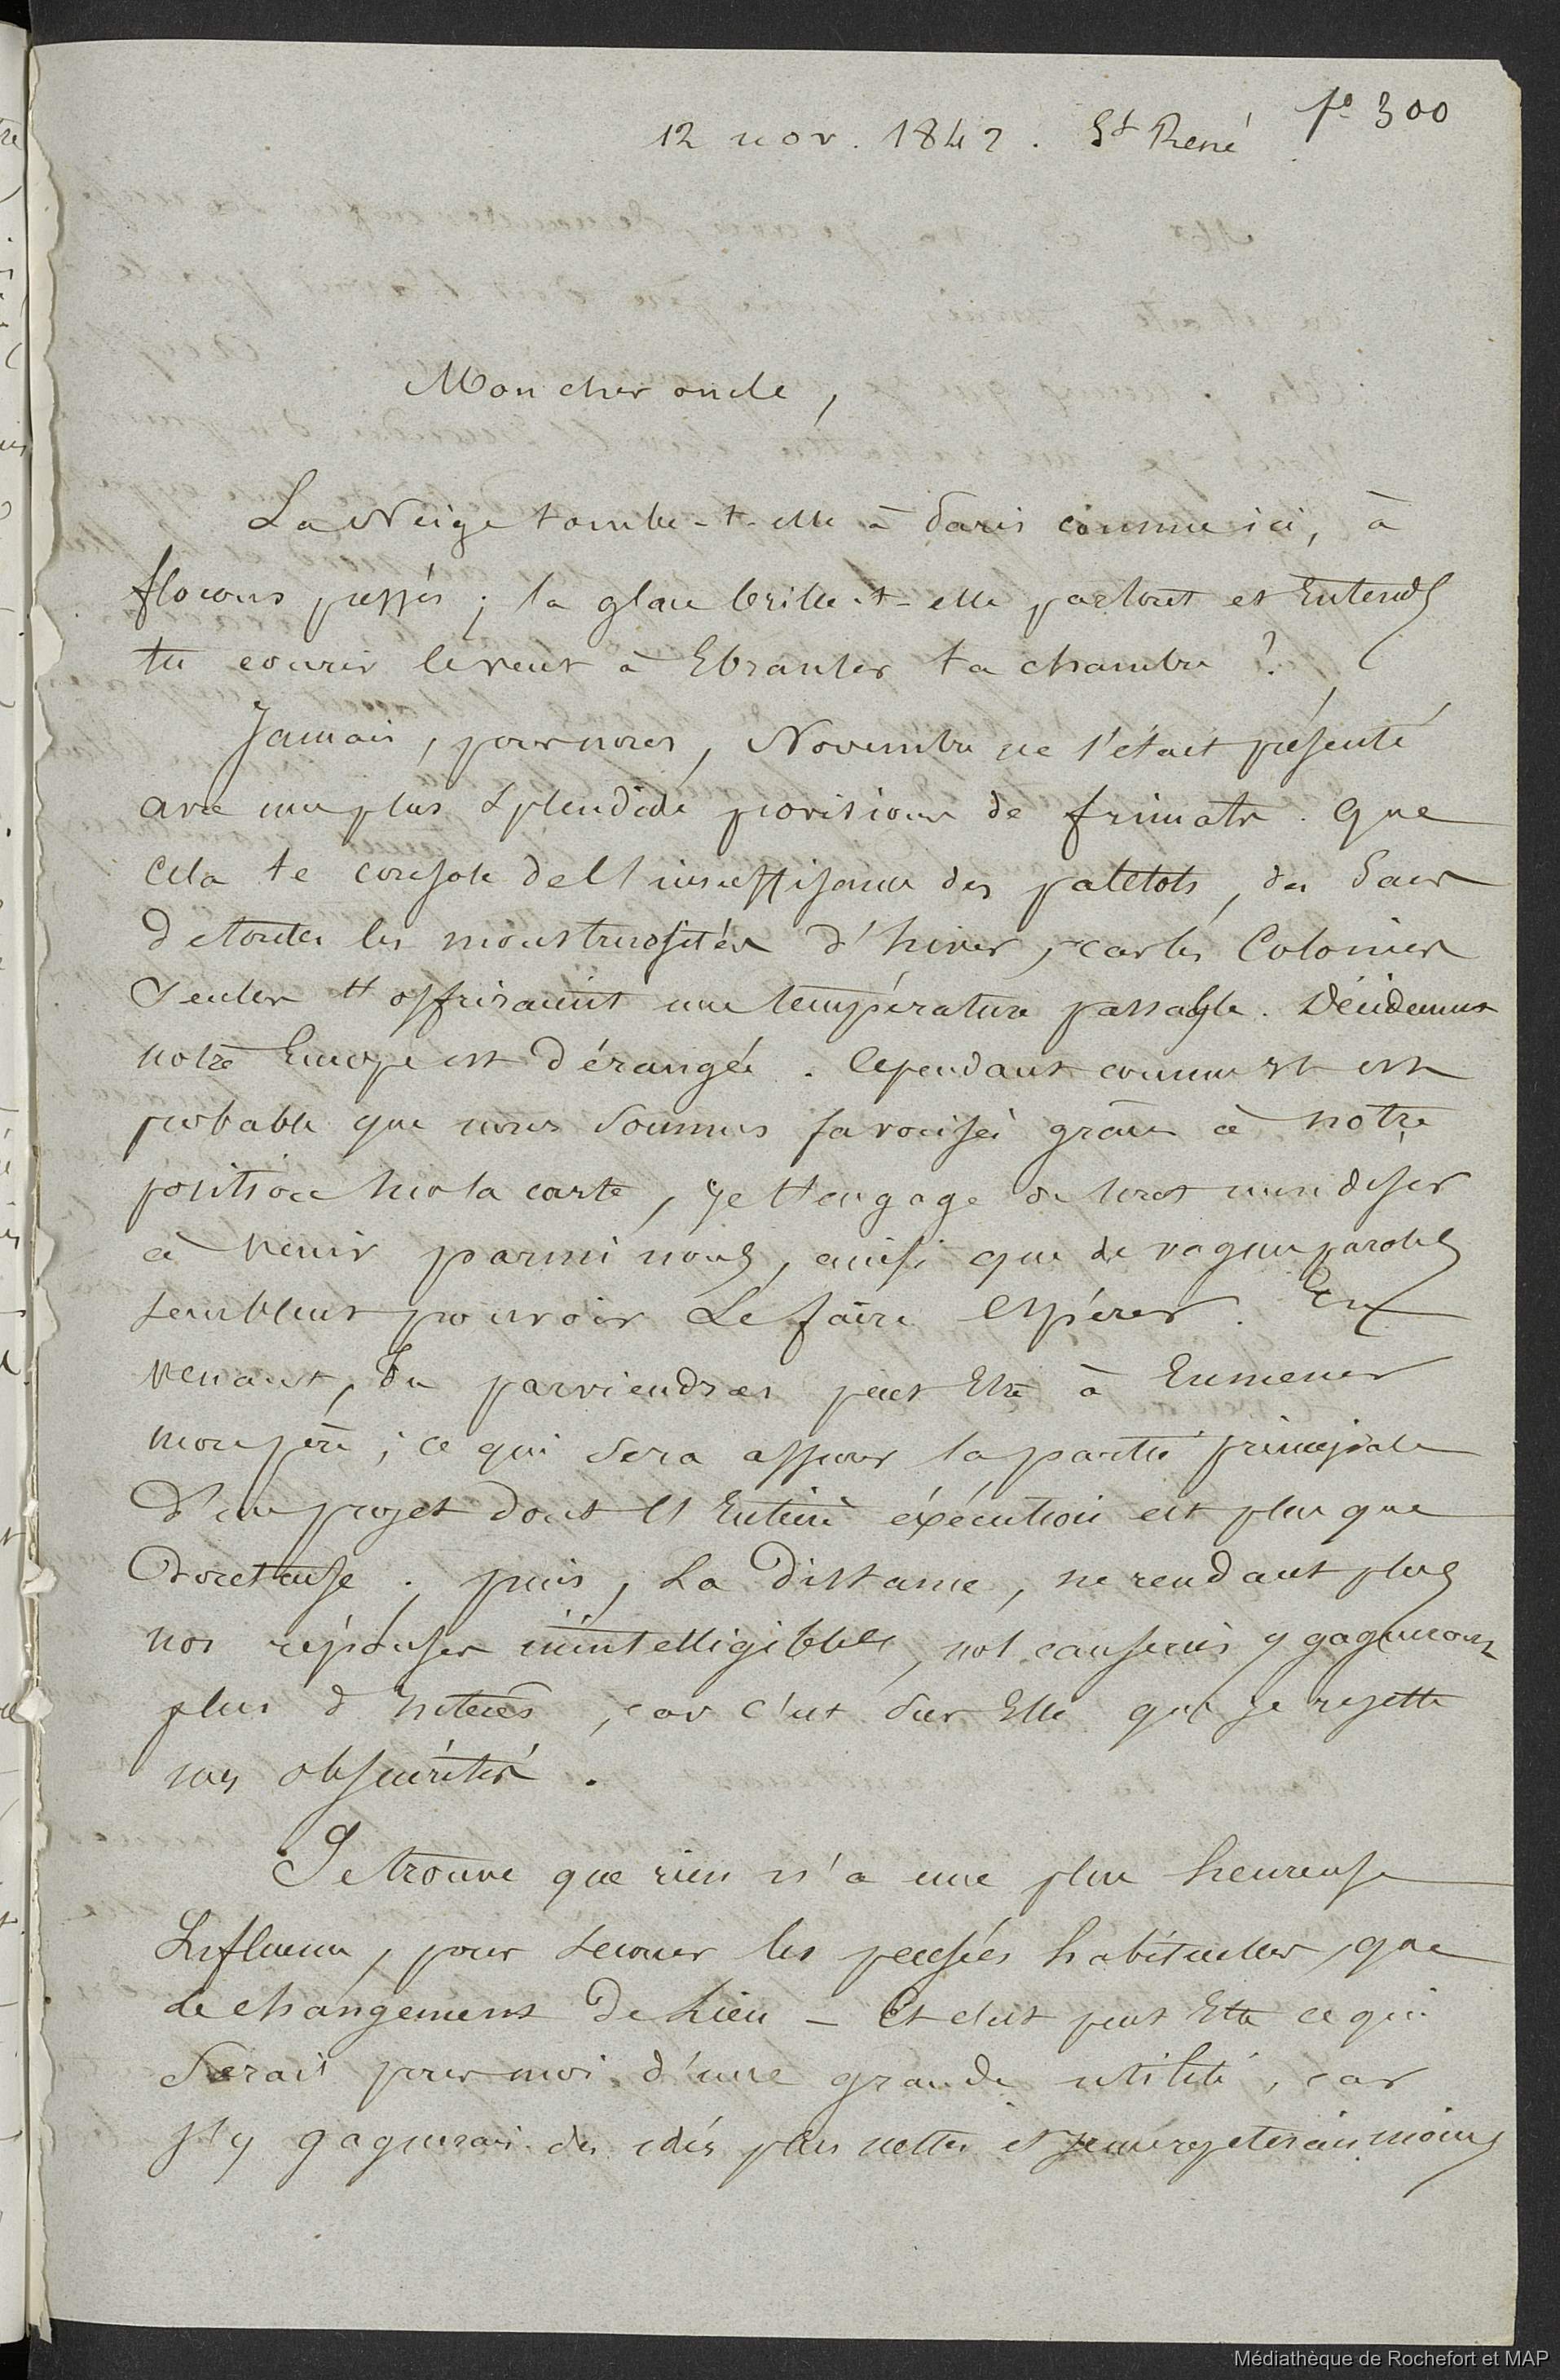 fo 300
12 nov. 1842. St René
Mon cher oncle,
La Neige tombe-t-elle à Paris comme ici, à
flocons pressés ; la glace brille-t-elle partout et Entends
tu courir le vent à Ebranler ta chambre ?
Jamais, pour nous, Novembre ne s'était présenté
avec une plus splendide provisions de frimats. Que
cela te console de l'insuffisance des paletots, des Sacs
de toutes les monstruosités d'hiver, car les Colonies
Seules t'offriraient une température passable. Décidemment
notre Europe est dérangée. Cependant comme il est
probable que nous sommes favorisés grâce à notre
position sur la carte, je t'engage
à venir parmi nous, ainsi que de vagues paroles
semblent pouvoir Le faire Espérer. En
venant, Tu parviendras peut Etre à Emmener
mon père ; ce qui sera assurer la partie principale
D'un projet dont l'Entière éxécution est plus que
Douteuse ; puis, La Distance, ne rendant plus
nos réponses inintelligibles, nos causeries y gagneront
plus d'intérês, car c'est sur Elle que je rejette
mes obscurités.
Je trouve que rien n'a une plus heureuse
Influence, pour secouer les pensées habituelles, que
le changement De Lieu _ Et c'est peut Etre ce qui
Serais pour moi d'une grande utilité, car
j'y gagnerais des idés plus nettes et je me répeterais moins
Médiathèque de Rochefort et MAP